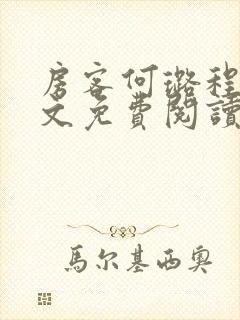 房客何璐程
文免費閱讀
馬尔基西奧